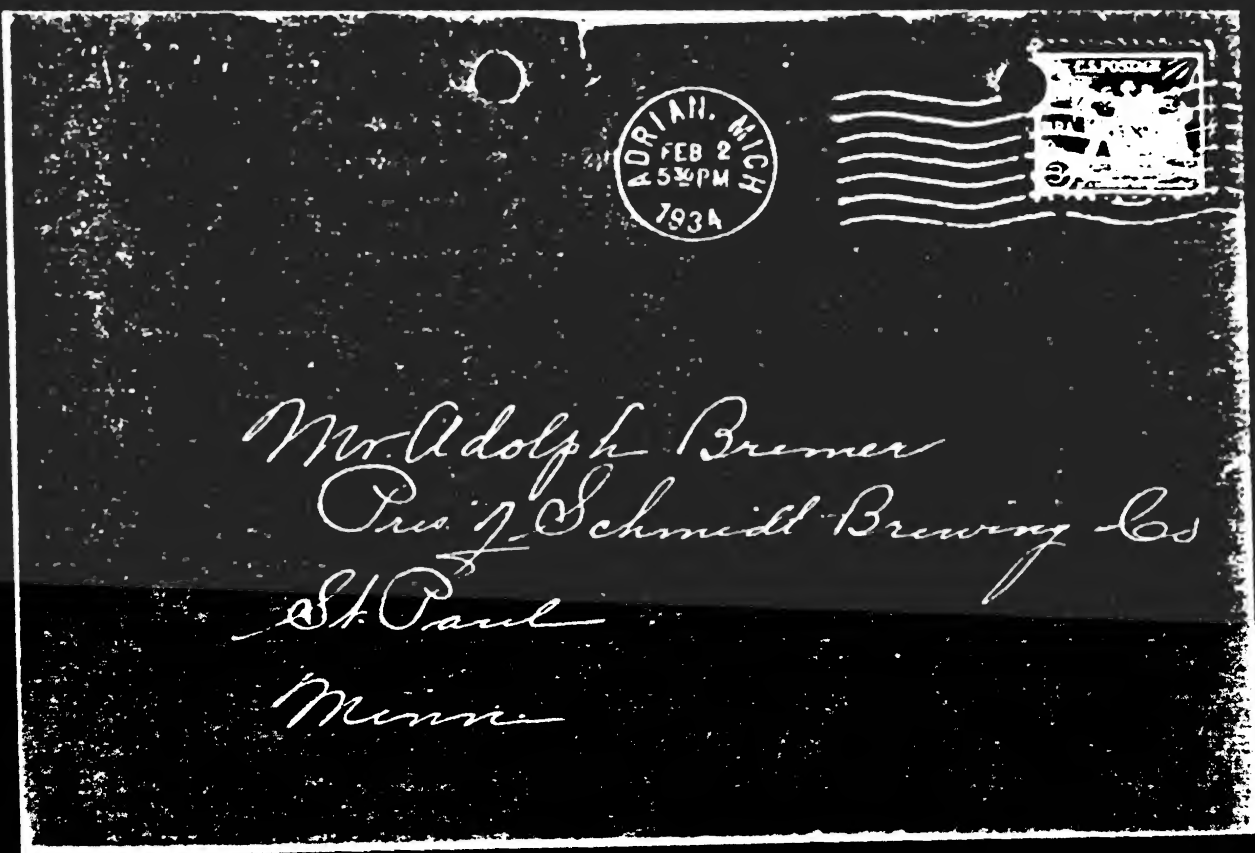 ADRIAN, MICH
FEB 2
5 30 PM
1934
U.S. POSTAGE
3
Mr. Adolph Bremer
Pres. of Schmidt Brewing Co
St. Paul
Minn.